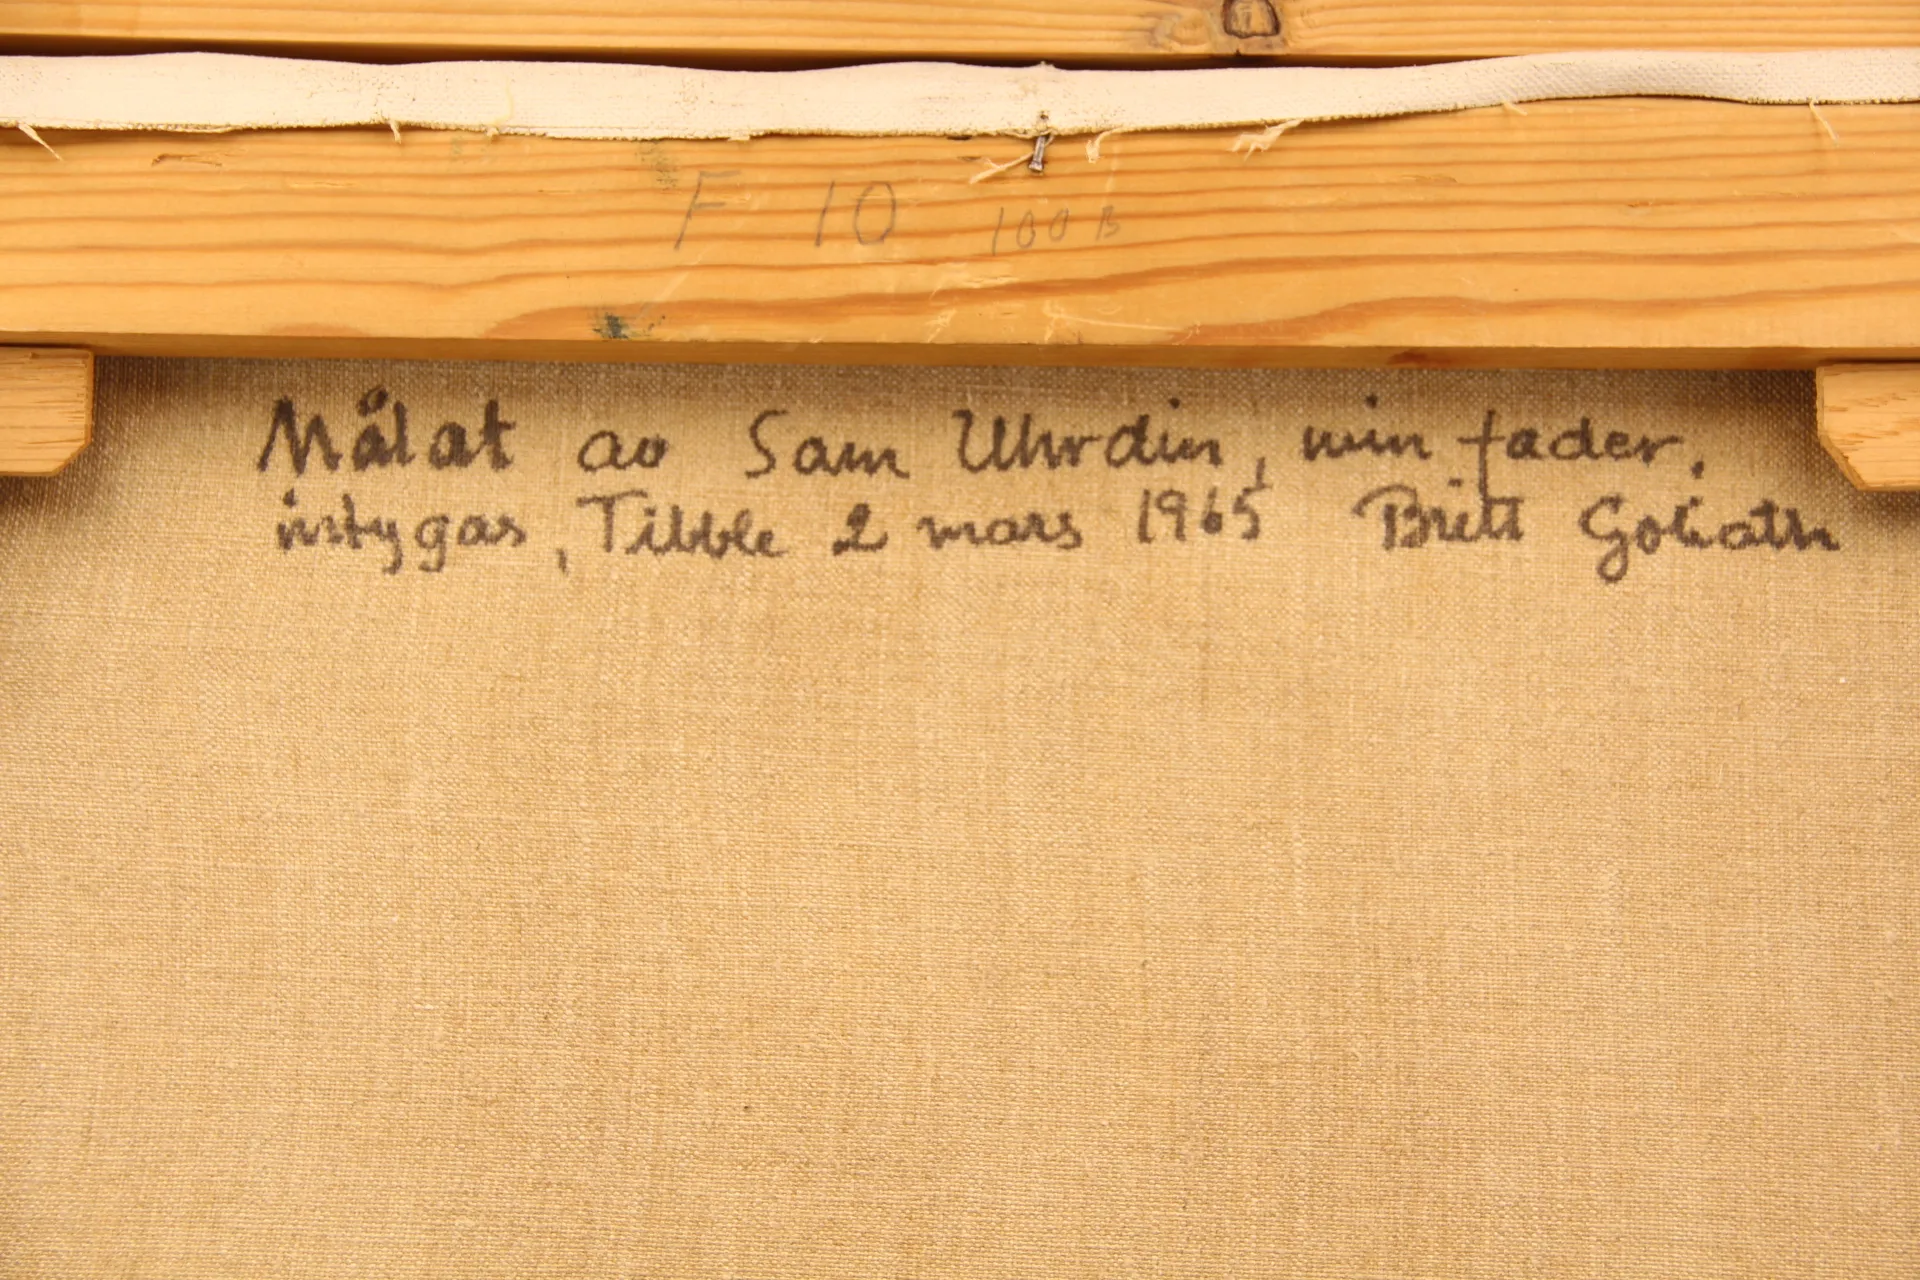 F 10 100 B
Målat av Sam Uhrdin, min fader,
intygas, Tibble 2 mars 1965 Britt Goliath